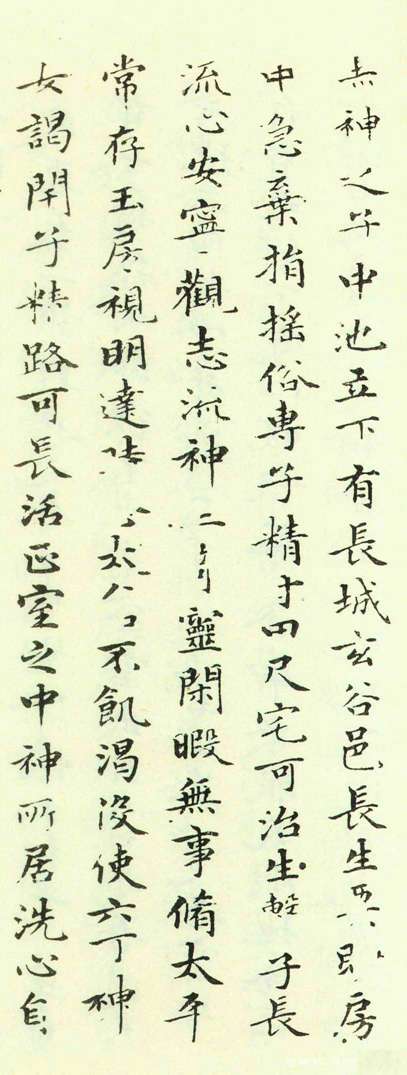 赤神之子中池立下有長城玄谷邑長生房
中急棄捐搖俗專子精寸田尺宅可治生子長
流心安寧觀志流神靈閑暇無事脩太平
常存玉房視明達太不飢渴役使六丁神
女謁閉子精路可長活正室之中神所居洗心自